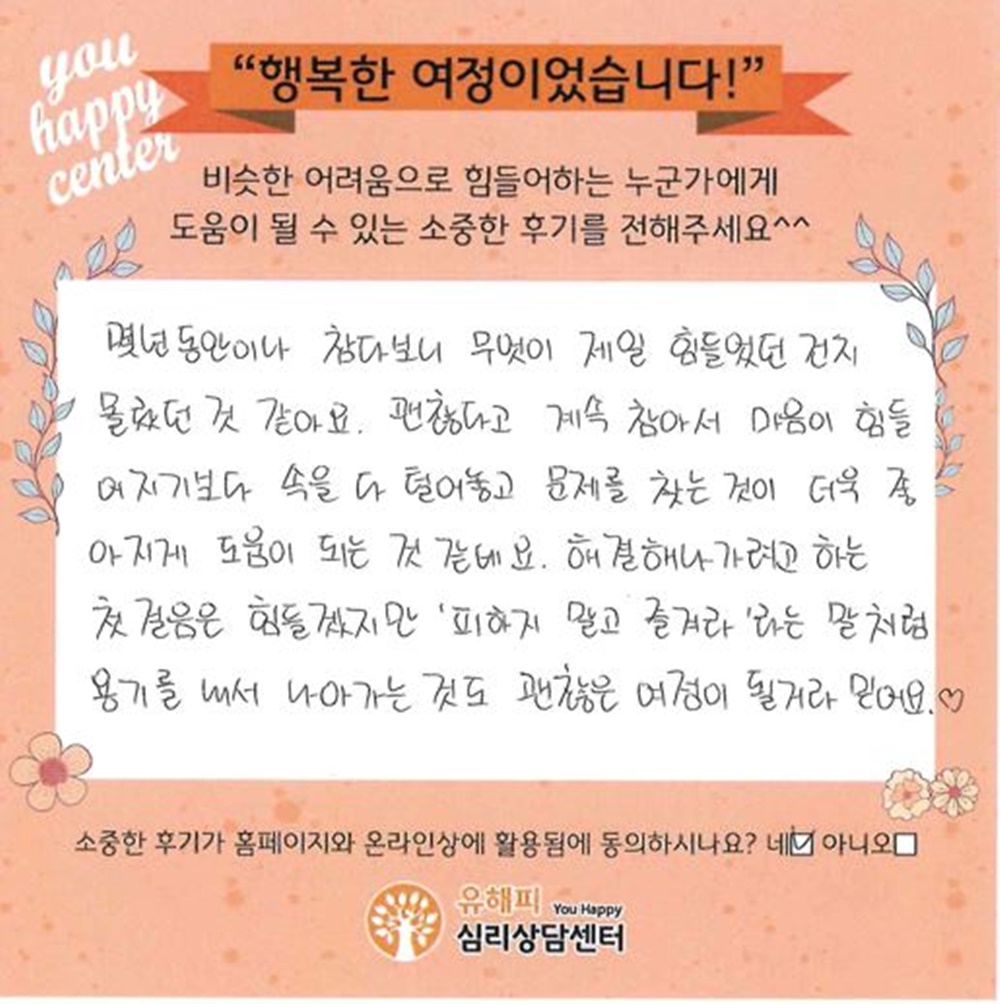 you
happy
center
“행복한 여정이었습니다!”
비슷한 어려움으로 힘들어하는 누군가에게
도움이 될 수 있는 소중한 후기를 전해주세요^^
몇년동안이나 참다보니 무엇이 제일 힘들었던 건지
몰랐던 것 같아요. 괜찮다고 계속 참아서 마음이 힘들
어지기보다 속을 다 털어놓고 문제를 찾는 것이 더욱 좋
아지게 도움이 되는 것 같네요. 해결해나가려고 하는
첫 걸음은 힘들겠지만 '피하지 말고 즐겨라'라는 말처럼
용기를 내서 나아가는 것도 괜찮은 여정이 될거라 믿어요.♡
소중한 후기가 홈페이지와 온라인상에 활용됨에 동의하시나요? 네☑ 아니오□
유해피 You Happy
심리상담센터